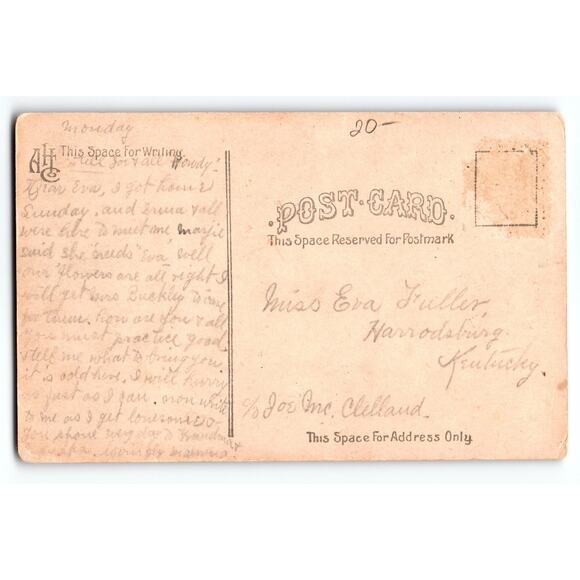 Monday
20-
AHC
This Space For Writing.
Tell Joe & all "Howdy"
Dear Eva, I got home
Sunday, and Erma & all
were here to meet me Marjie
said she "needs" "Eva", well
our flowers are all right I
will get Mrs Buckley to care
for them. how are you & all
you must practice good,
& tell me what to bring you
it is cold here. I will hurry
as fast as I can. now write
to me as I get lonesome so
you phone every day to Grandma &
Lovingly Mamma
POST CARD.
This Space Reserved For Postmark
Miss Eva Fuller
Harrodsburg
Kentucky.
c/o Joe Mc. Clelland.
This Space For Address Only.